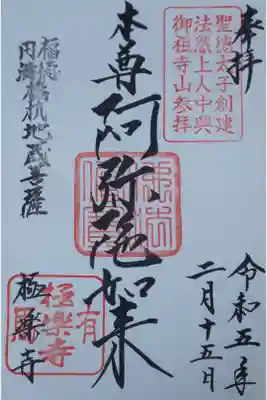 奉拝
聖徳太子創建
法然上人中興
御祖寺山参拝
令和五年
二月十五日
本尊阿弥陀如来
極楽寺
有
極楽寺
地蔵菩薩